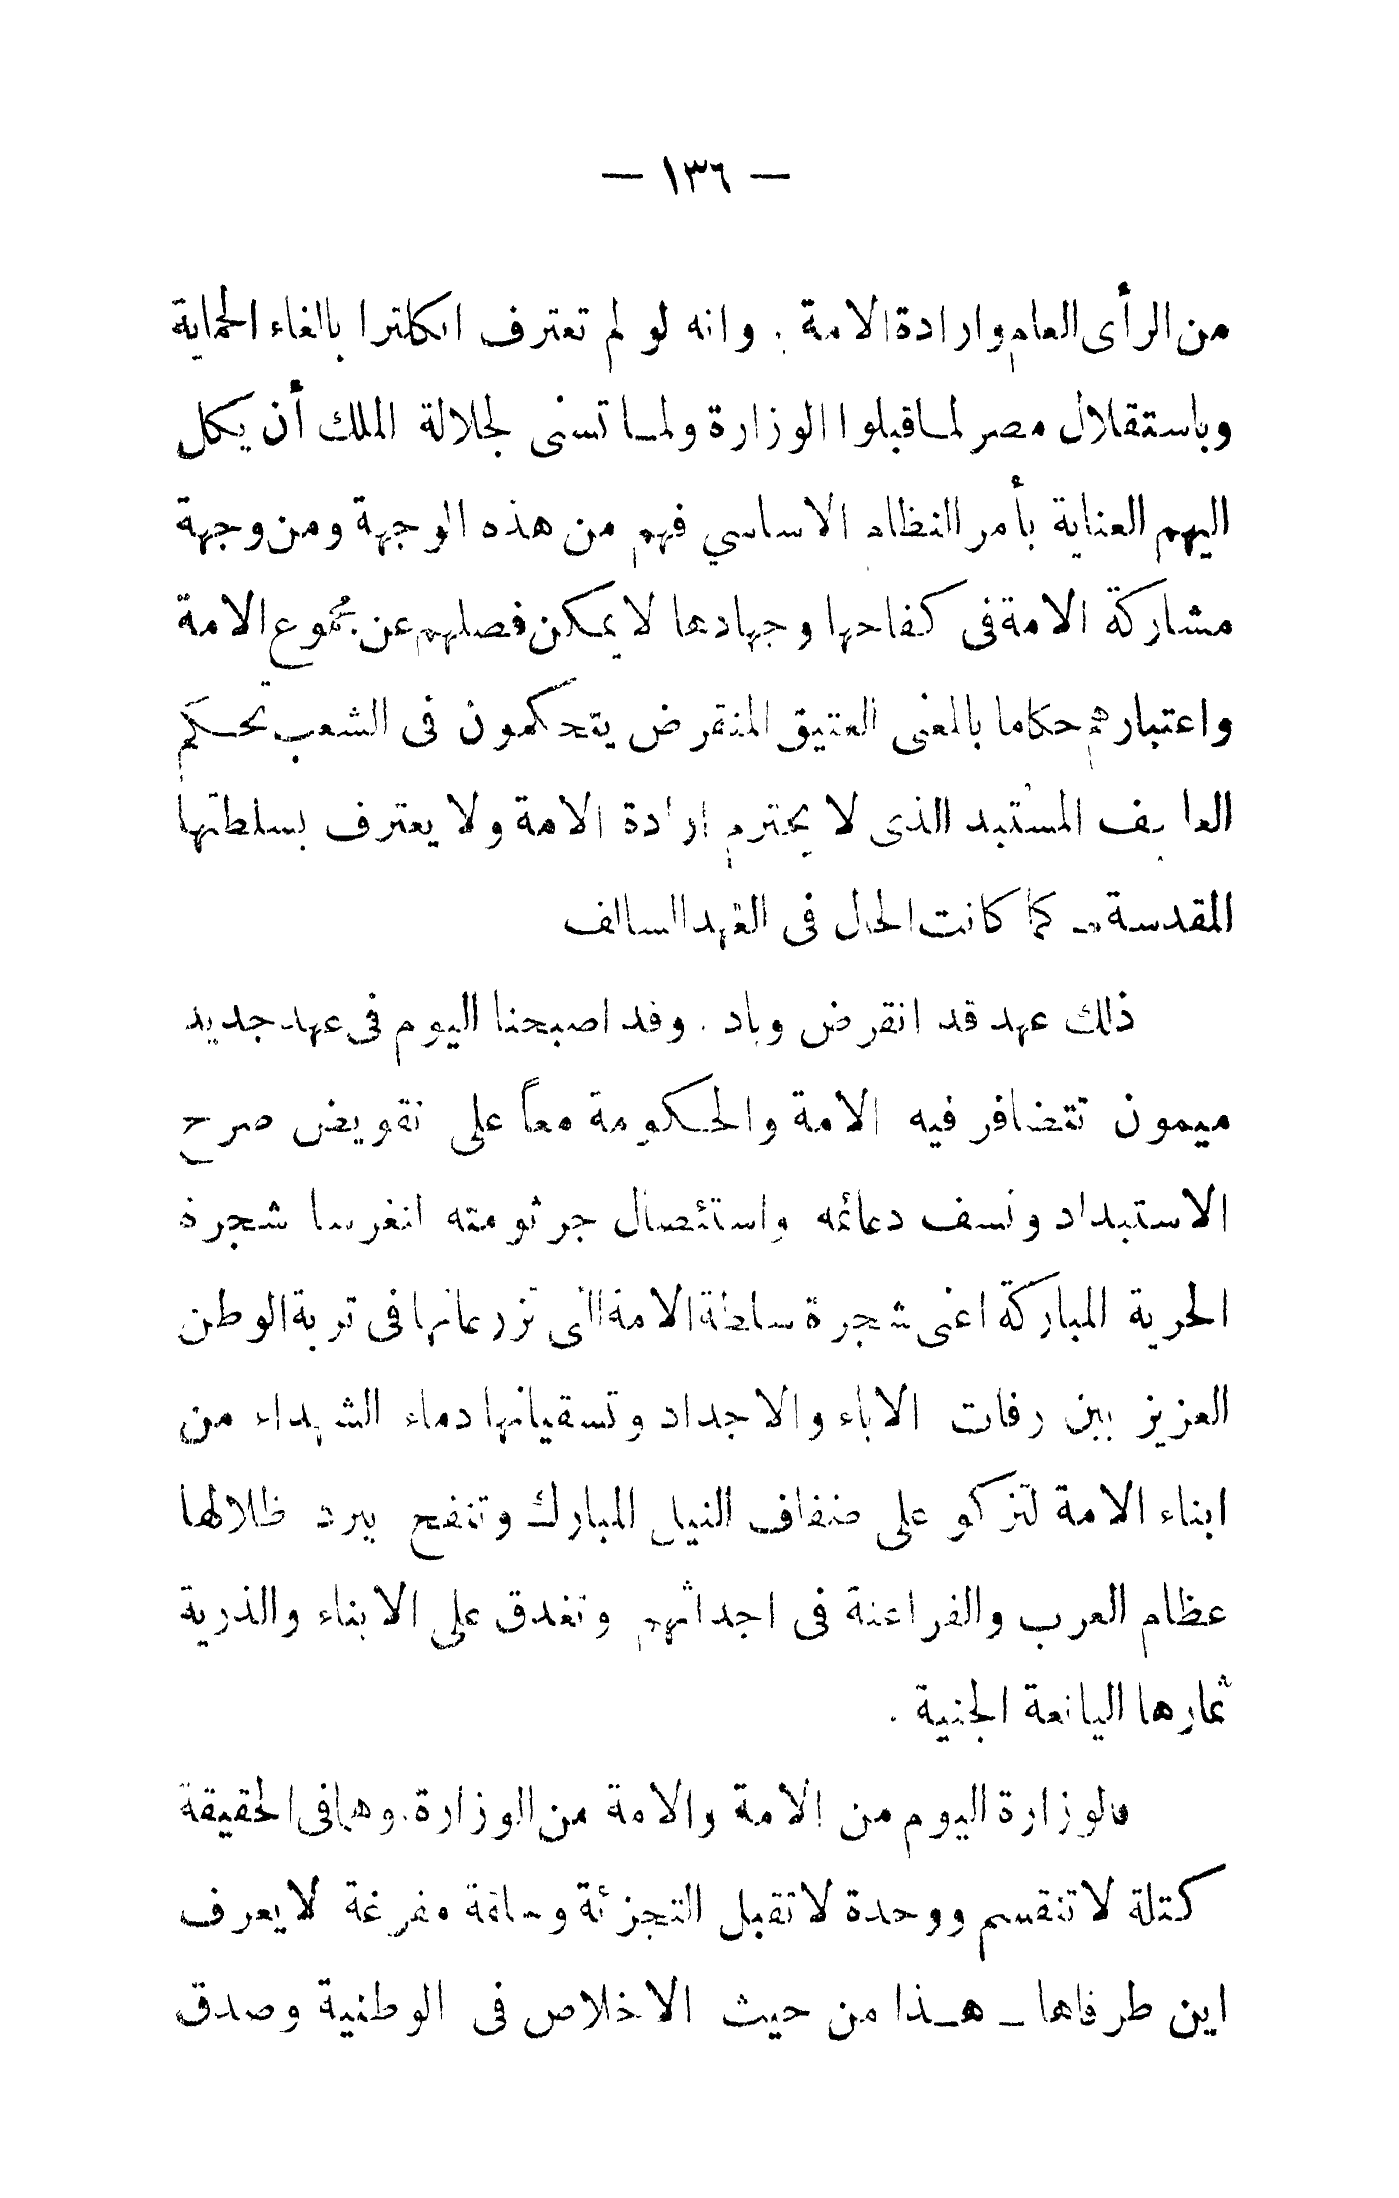 — ١٣٦ —
من الرأى العام وارادة الامة . وانه لو لم تعترف انكلترا بالغاء الحماية
وباستقلال مصر لما قبلوا الوزارة ولما تسنى لجلالة الملك أن يكل
اليهم العناية بأمر النظام الاساسي فهم من هذه الوجهة ومن وجهة
مشاركة الامة فى كفاحها وجهادها لا يمكن فصلهم عن مجموع الامة
واعتبارهم حكاما بالمعنى العتيق المنقرض يتحكمون فى الشعب تحكم
المستبد الذى لا يحترم ارادة الامة ولا يعترف بسلطتها
المقدسة ـ كما كانت الحال فى العهد السالف
ذلك عهد قد انقرض وباد . وقد اصبحنا اليوم فى عهد جديد
ميمون تتضافر فيه الامة والحكومة معاً على تقويض صرح
الاستبداد ونسف دعائمه واستئصال جرثومته لتغرسا شجرة
الحرية المباركة اعنى شجرة سلطة الامة التى تزرعانها فى تربة الوطن
العزيز بين رفات الاباء والاجداد وتسقيانها دماء الشهداء من
ابناء الامة لتزكو على ضفاف النيل المبارك وتنفح ببرد ظلالها
عظام العرب والفراعنة فى اجداثهم وتغدق على الابناء والذرية
ثمارها اليانعة الجنية .
فالوزارة اليوم من الامة والامة من الوزارة . وهما فى الحقيقة
كتلة لا تنقسم ووحدة لا تقبل التجزئة وحلقة مفرغة لا يعرف
اين طرفاها ـ هـذا من حيث الاخلاص فى الوطنية وصدق